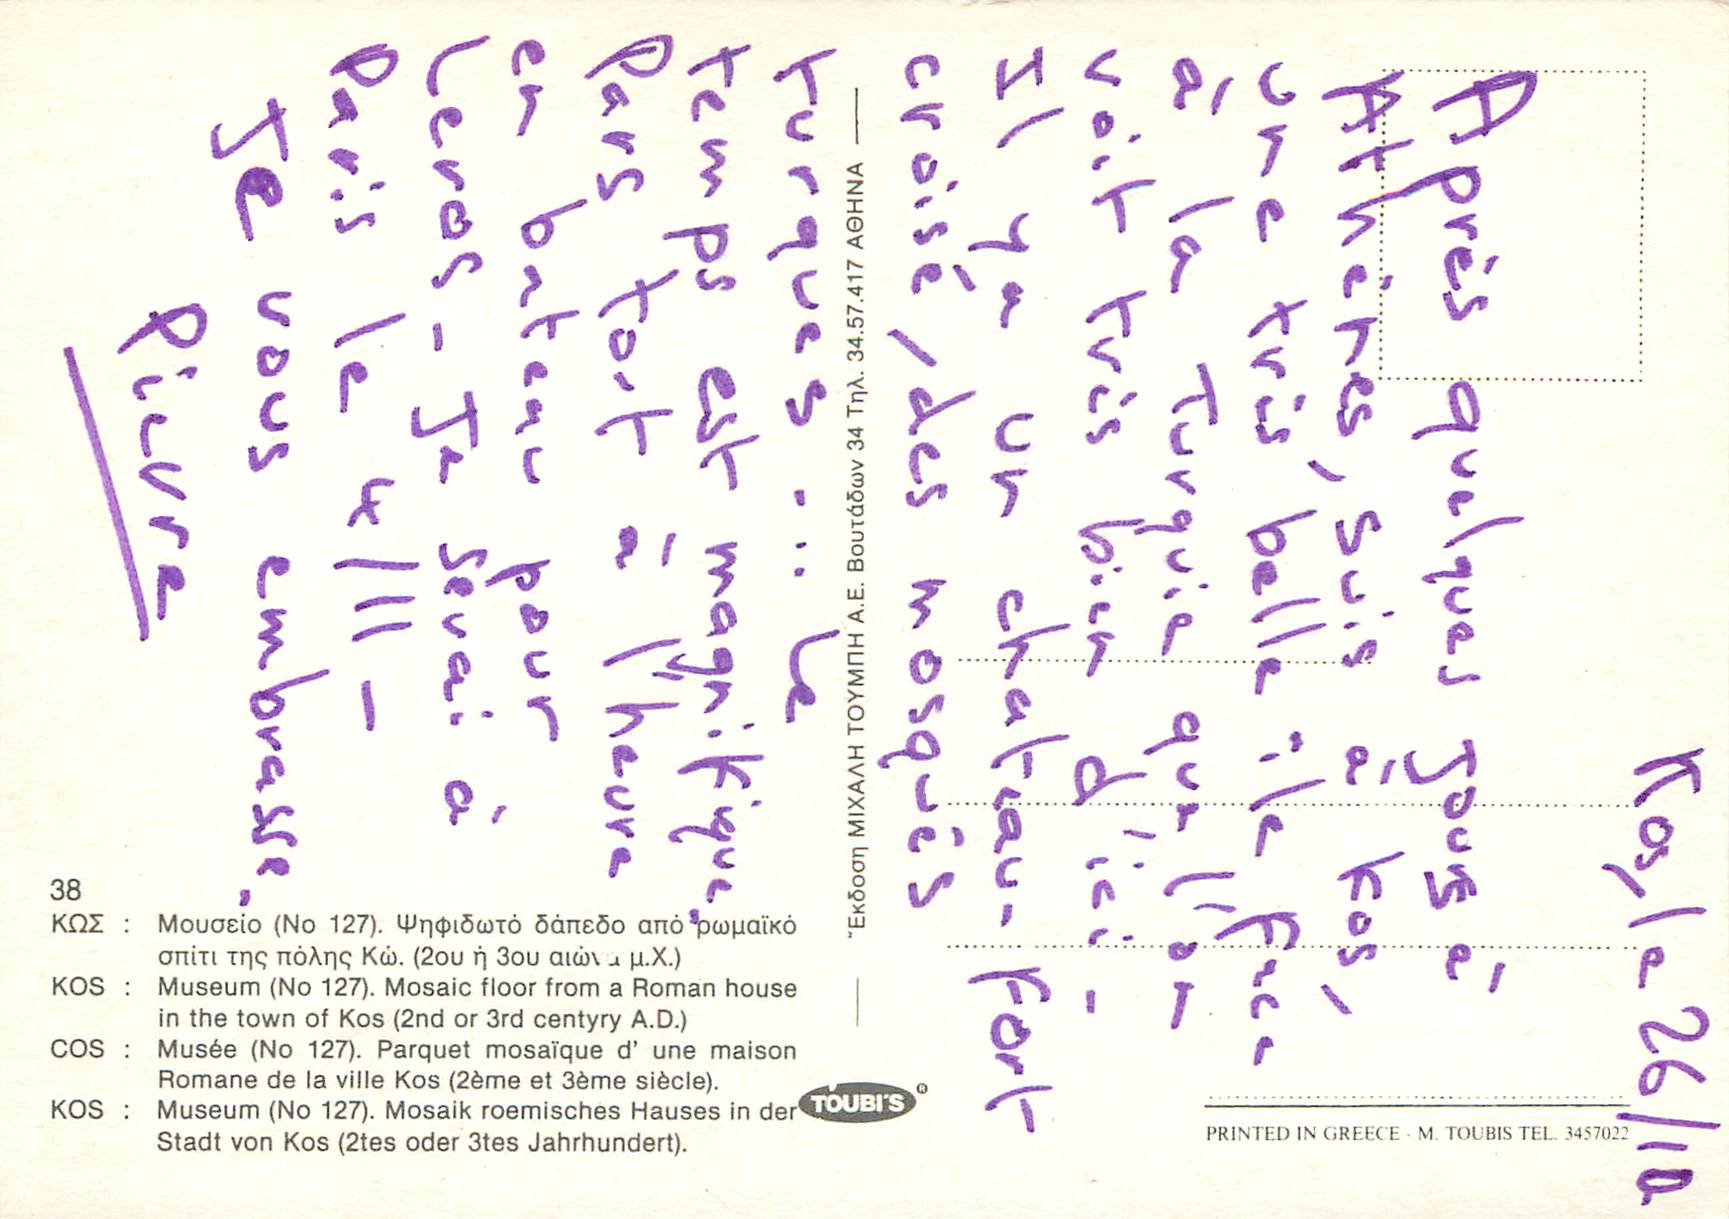 Kos, le 26/10
Après quelques jours à
Athènes, suis à Kos,
une très belle île face
à la Turquie que l'on
voit très bien d'ici -
Il y a un chateau-fort
croisé, des mosqués
turques... Le
temps est magnifique,
Pars tôt à l'heure
en bateau pour
Leros - Je serai à
Paris le 4/11 -
Je vous embrasse,
Pierre
38
ΚΩΣ : Μουσείο (Νο 127). Ψηφιδωτό δάπεδο από ρωμαϊκό
σπίτι της πόλης Κώ. (2ου ή 3ου αιώνα μ.Χ.)
KOS : Museum (No 127). Mosaic floor from a Roman house
in the town of Kos (2nd or 3rd centyry A.D.)
COS : Musée (No 127). Parquet mosaïque d' une maison
Romane de la ville Kos (2ème et 3ème siècle).
KOS : Museum (No 127). Mosaik roemisches Hauses in der
Stadt von Kos (2tes oder 3tes Jahrhundert).
Έκδοση ΜΙΧΑΛΗ ΤΟΥΜΠΗ Α.Ε. Βουτάδων 34 Τηλ. 34.57.417 ΑΘΗΝΑ
TOUBI'S ®
PRINTED IN GREECE - M. TOUBIS TEL. 3457022